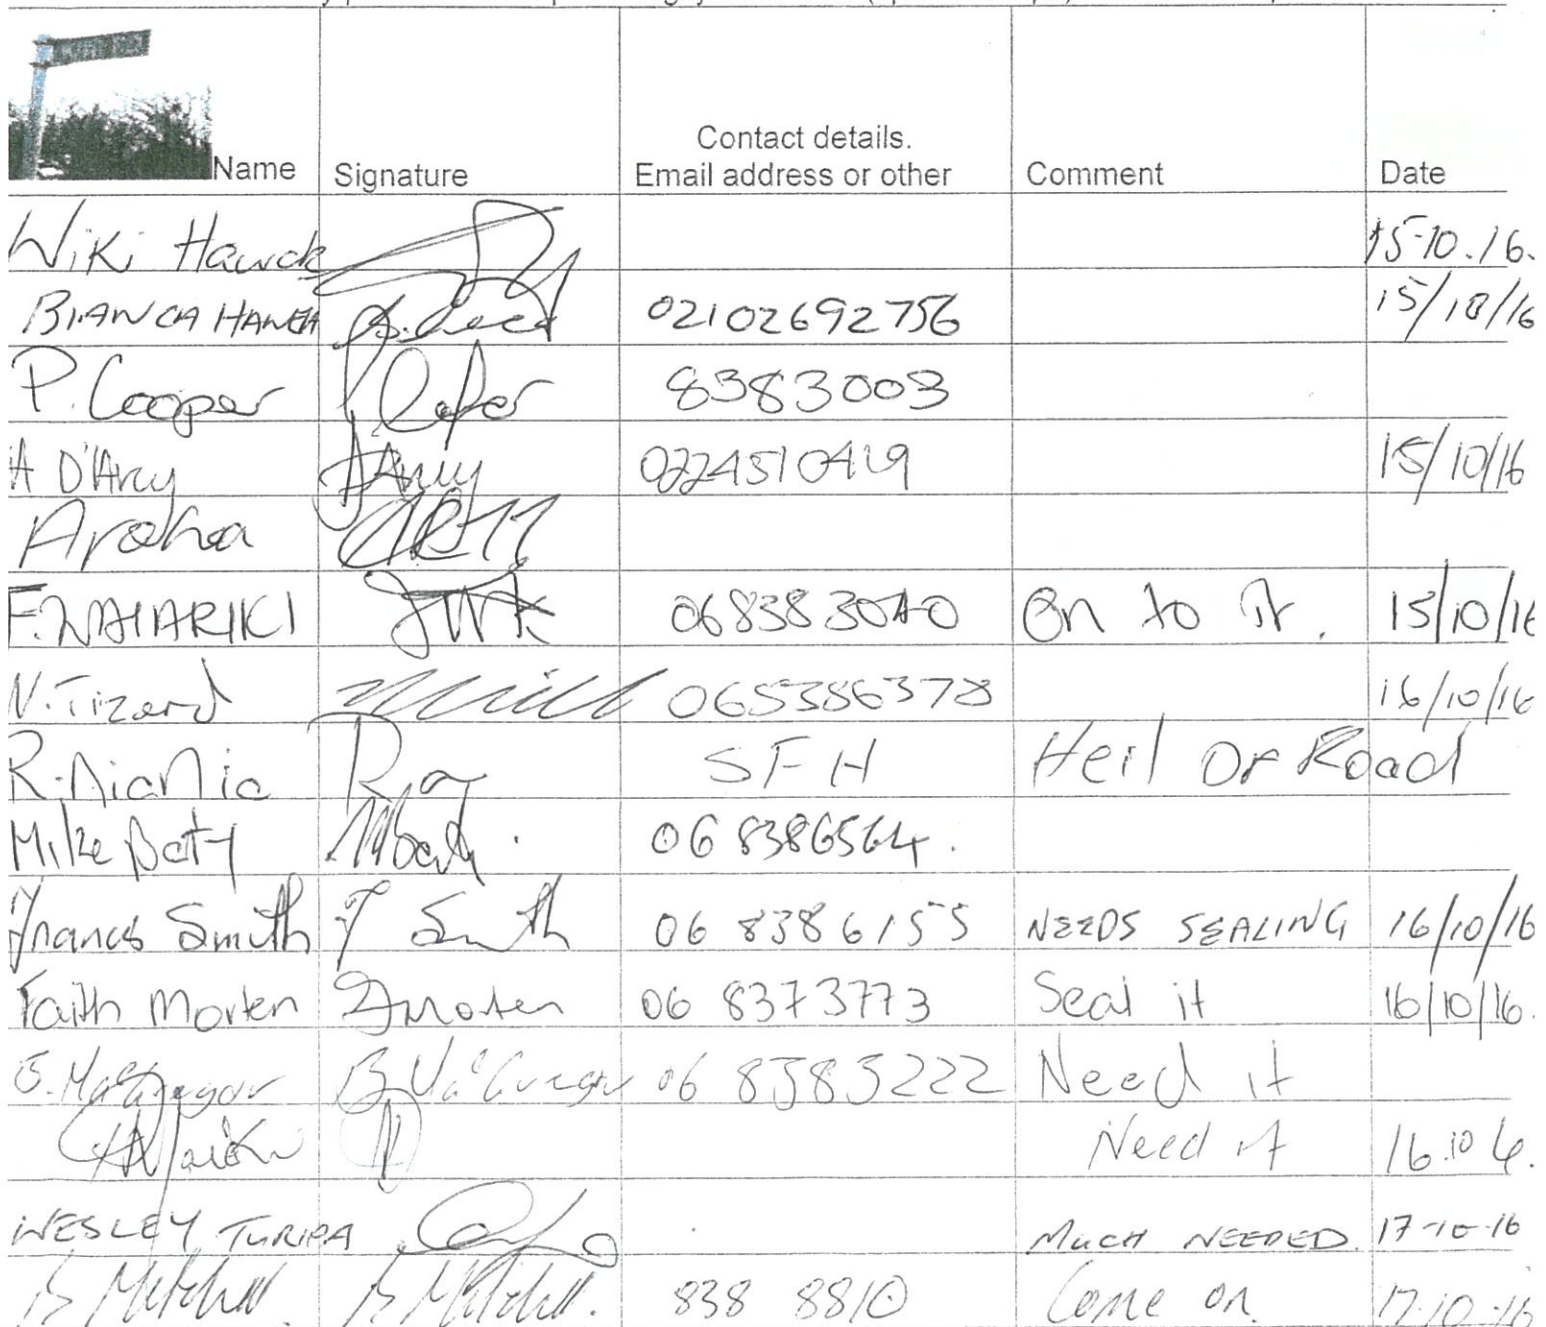 Name Signature Contact details. Email address or other Comment Date
Wiki Hauck 15-10.16.
BIANCA 02102692756 15/10/16
P. Cooper 8383003
A D'Arcy D'Arcy 0224510419 15/10/16
Aroha
F. WAIARIKI 06 838 3040 On to it. 15/10/16
N. Tizard 065386378 16/10/16
R. Niania SFH Heil OF Road
Mike Baty MBaty. 06 8386564.
Francis Smith F Smith 06 8386155 NEEDS SEALING 16/10/16
Faith Morten FMorten 06 8373773 Seal it 16/10/16.
B. MacGregor B MacGregor 06 8383222 Need it
Need it 16.10
WESLEY TURIPA MUCH NEEDED. 17-10-16
B Mitchell. B Mitchell. 838 8810 Come on 17-10-16